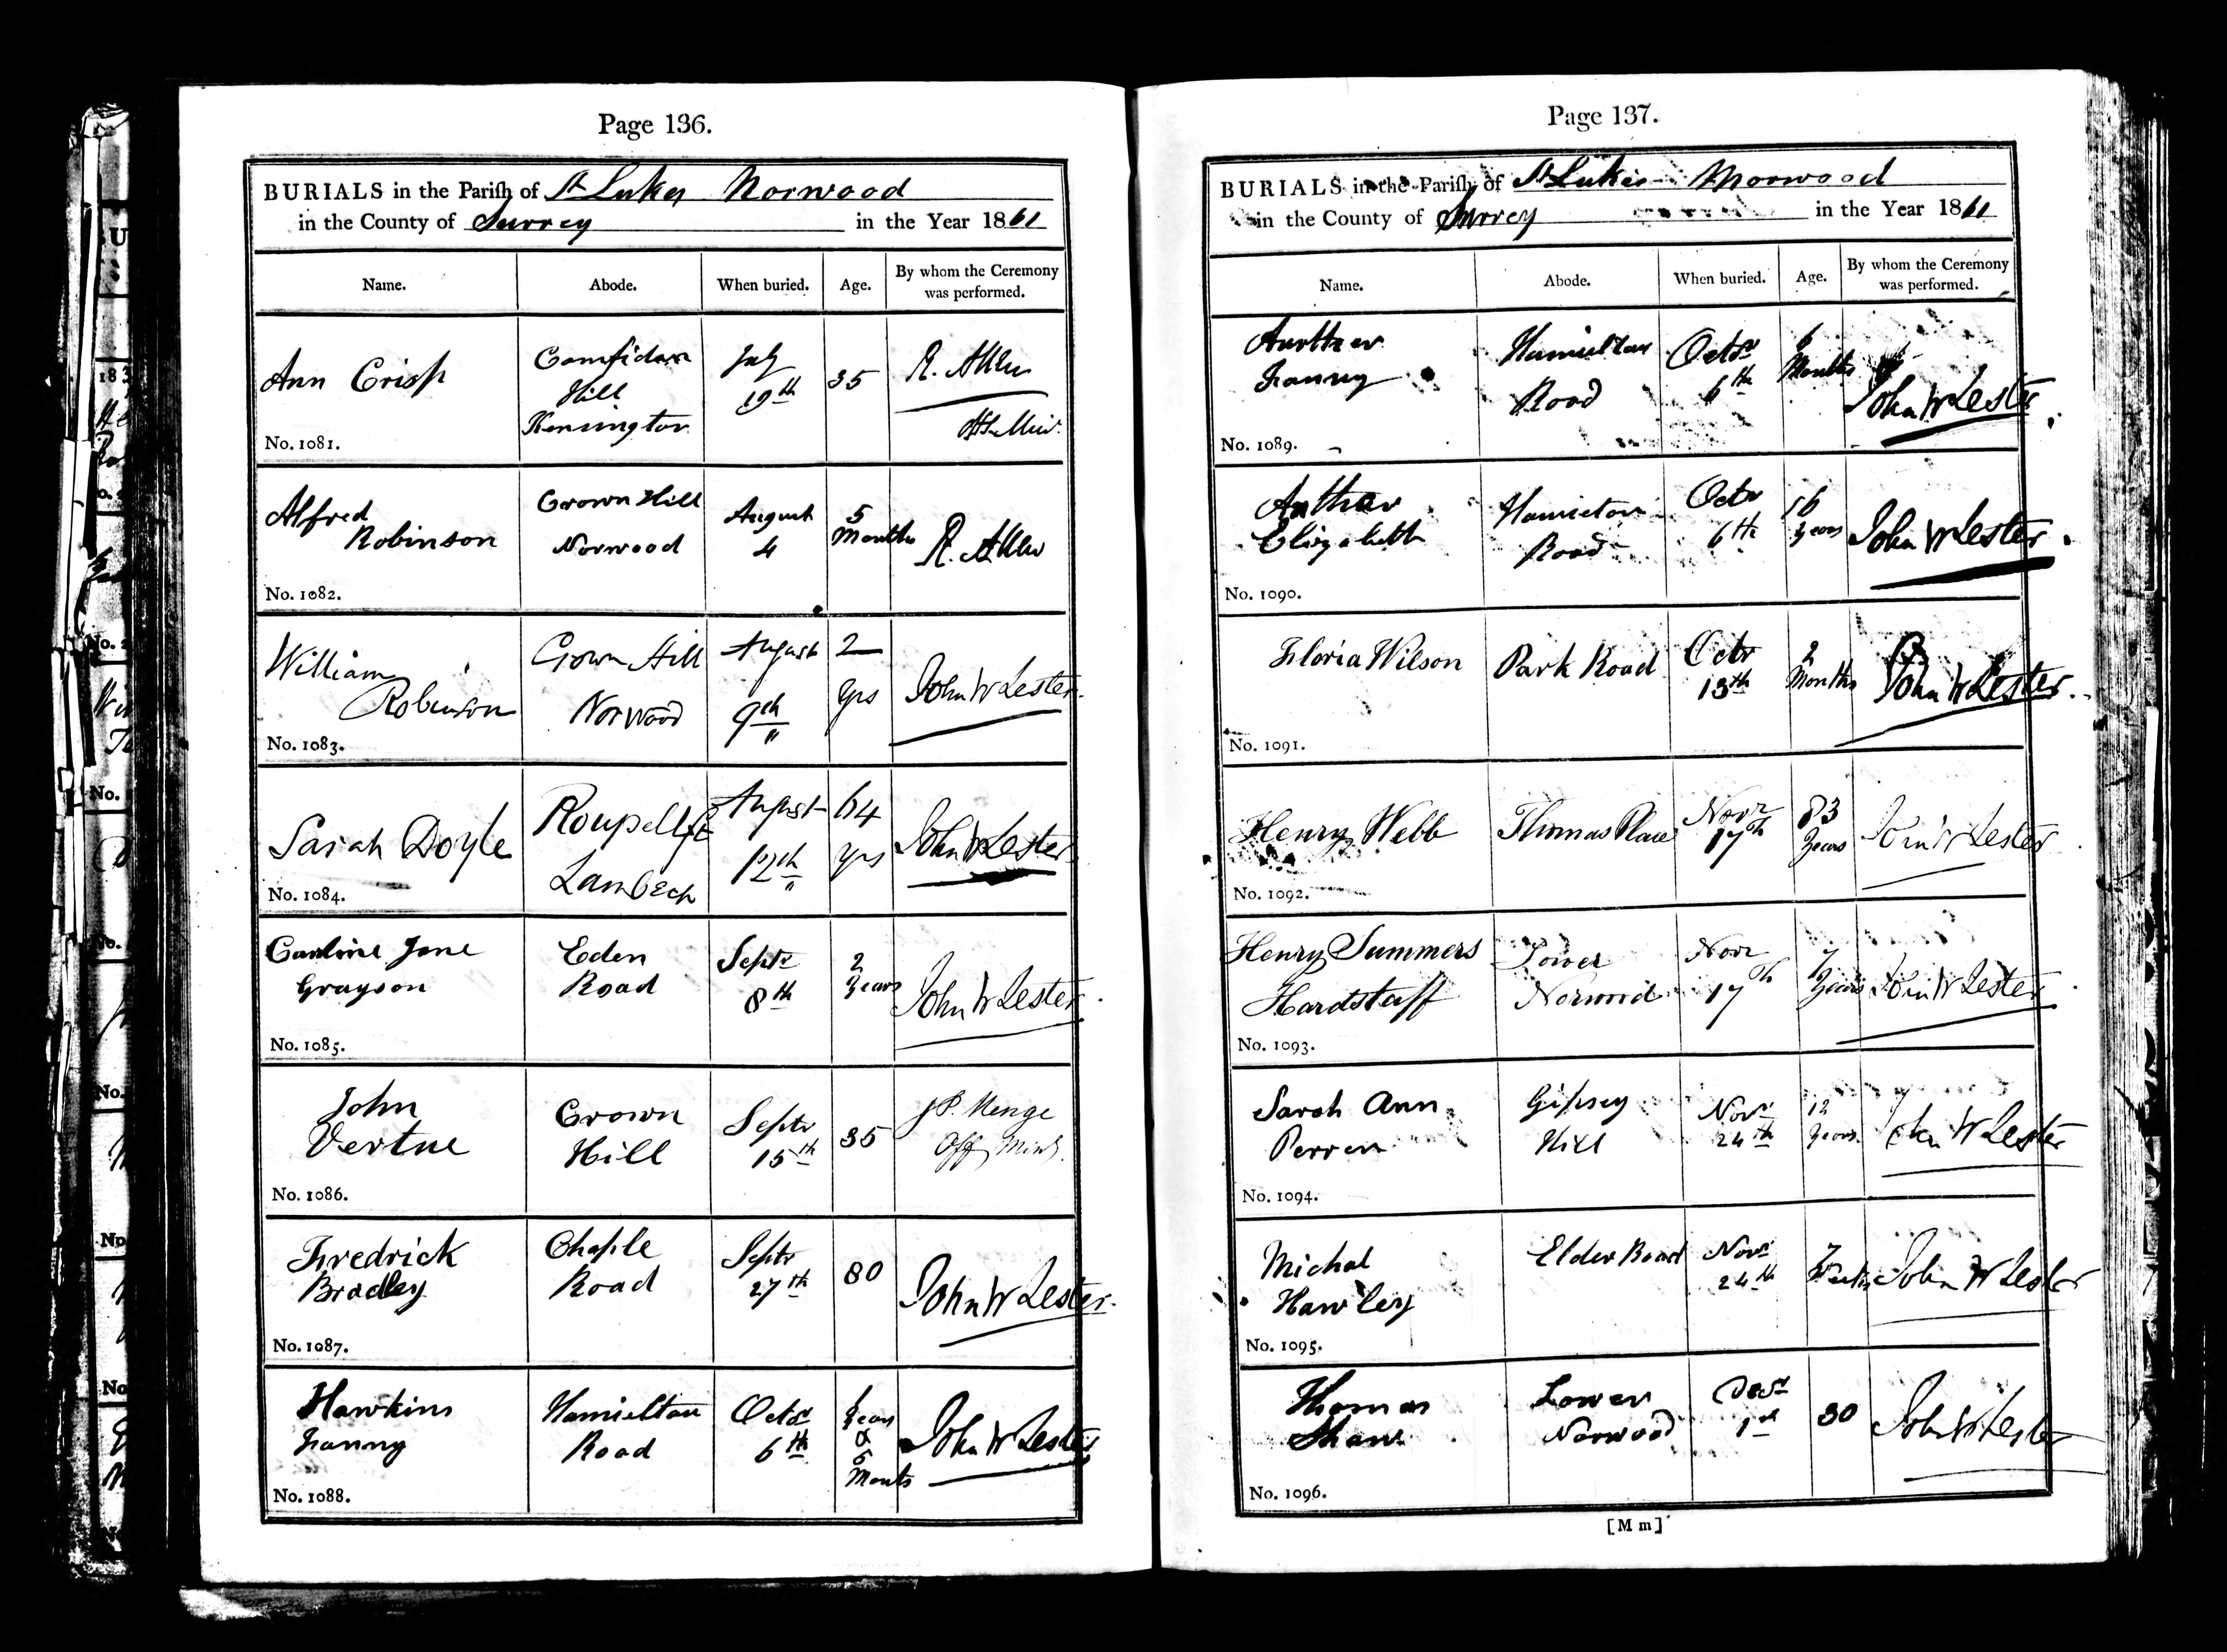 Page 136.
BURIALS in the Parish of St Lukes Norwood
in the County of Surrey in the Year 1861
Name. Abode. When buried. Age. By whom the Ceremony was performed.
Ann Crisp
Hill
Kensington
July
19th
35
R. Allen
No. 1081.
Alfred
Robinson
Crown Hill
Norwood
August
4
5
Months
R. Allen
No. 1082.
William
Robinson
Crown Hill
Norwood
August
9th "
2
yrs
John W Lester
No. 1083.
Sarah Doyle
Roupell St
Lambeth
August
12th "
64
yrs
John W Lester
No. 1084.
Caroline Jane
Grayson
Eden
Road
Septr
8th
2
Years
John W Lester
No. 1085.
John
Vertue
Crown
Hill
Septr
15th
35
J P. Menge
Off Minr
No. 1086.
Fredrick
Bradley
Chaple
Road
Septr
27th
80
John W Lester
No. 1087.
Hawkins
Fanny
Hamielton
Road
Octr
6th
Years
&
6
Monts
John W Lester
No. 1088.
Page 137.
BURIALS in the Parish of St Lukes Norwood
in the County of Surrey in the Year 1861
Name. Abode. When buried. Age. By whom the Ceremony was performed.
Fanny
Hamielton
Road
Octr
6th
6
Months
John W Lester
No. 1089.
Elizabeth
Hamieton
Road
Octr
6th
16
Years
John W Lester
No. 1090.
Floria Wilson
Park Road
Octr
13th
2
Months
John W Lester
No. 1091.
Henry Webb
Thomas Place
Novr
17th
83
Years
John W Lester
No. 1092.
Henry Summers
Hardstaff
Lower
Norwood
Novr
17th
7
Years
John W Lester
No. 1093.
Sarah Ann
Perren
Gipsey
Hill
Novr
24th
12
Years
John W Lester
No. 1094.
Michal
Hawley
Elder Road
Novr
24th
7
Weeks
John W Lester
No. 1095.
Thomas
Shaw
Lower
Norwood
Decr
1st
30
John W Lester
No. 1096.
[M m]